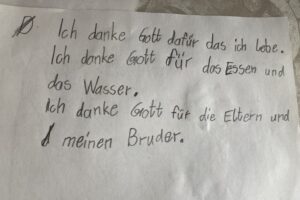 Ich danke Gott dafür das ich lebe.
Ich danke Gott für das Essen und
das Wasser.
Ich danke Gott für die Eltern und
meinen Bruder.